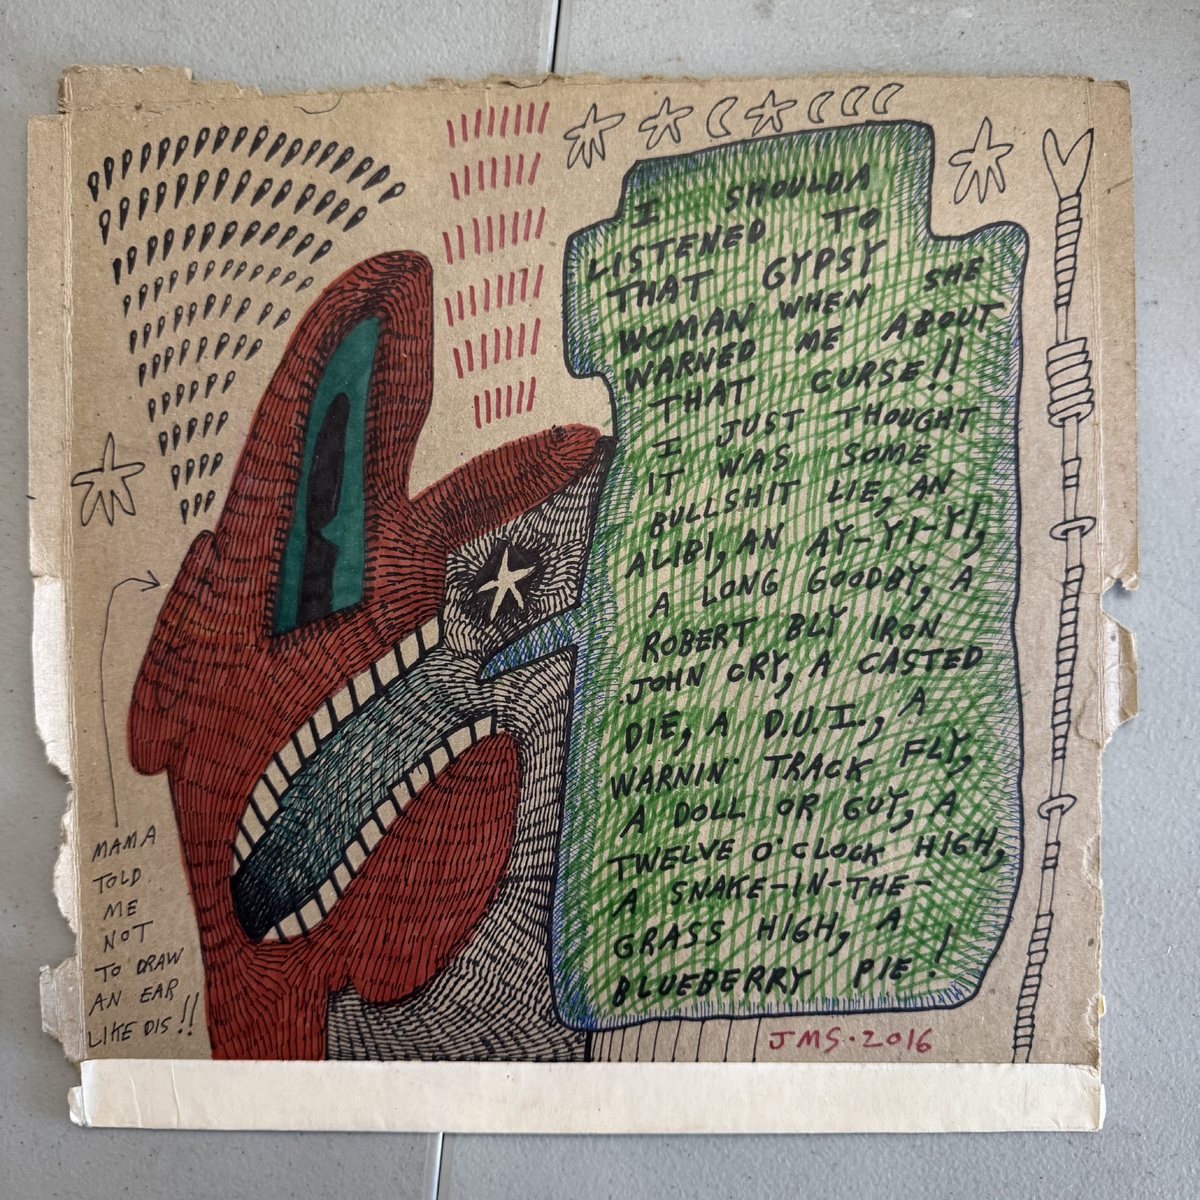 I SHOULDA
LISTENED TO
THAT GYPSY
WOMAN WHEN SHE
WARNED ME ABOUT
THAT CURSE!!
I JUST THOUGHT
IT WAS SOME
BULLSHIT LIE, AN
ALIBI, AN AY-YI-YI,
A LONG GOODBY, A
ROBERT BLY IRON
JOHN CRY, A CASTED
DIE, A D.U.I., A
WARNIN' TRACK FLY,
A DOLL OR GUY, A
TWELVE O'CLOCK HIGH,
A SNAKE-IN-THE-
GRASS HIGH, A
BLUEBERRY PIE!
MAMA
TOLD
ME
NOT
TO DRAW
AN EAR
LIKE DIS!!
JMS.2016